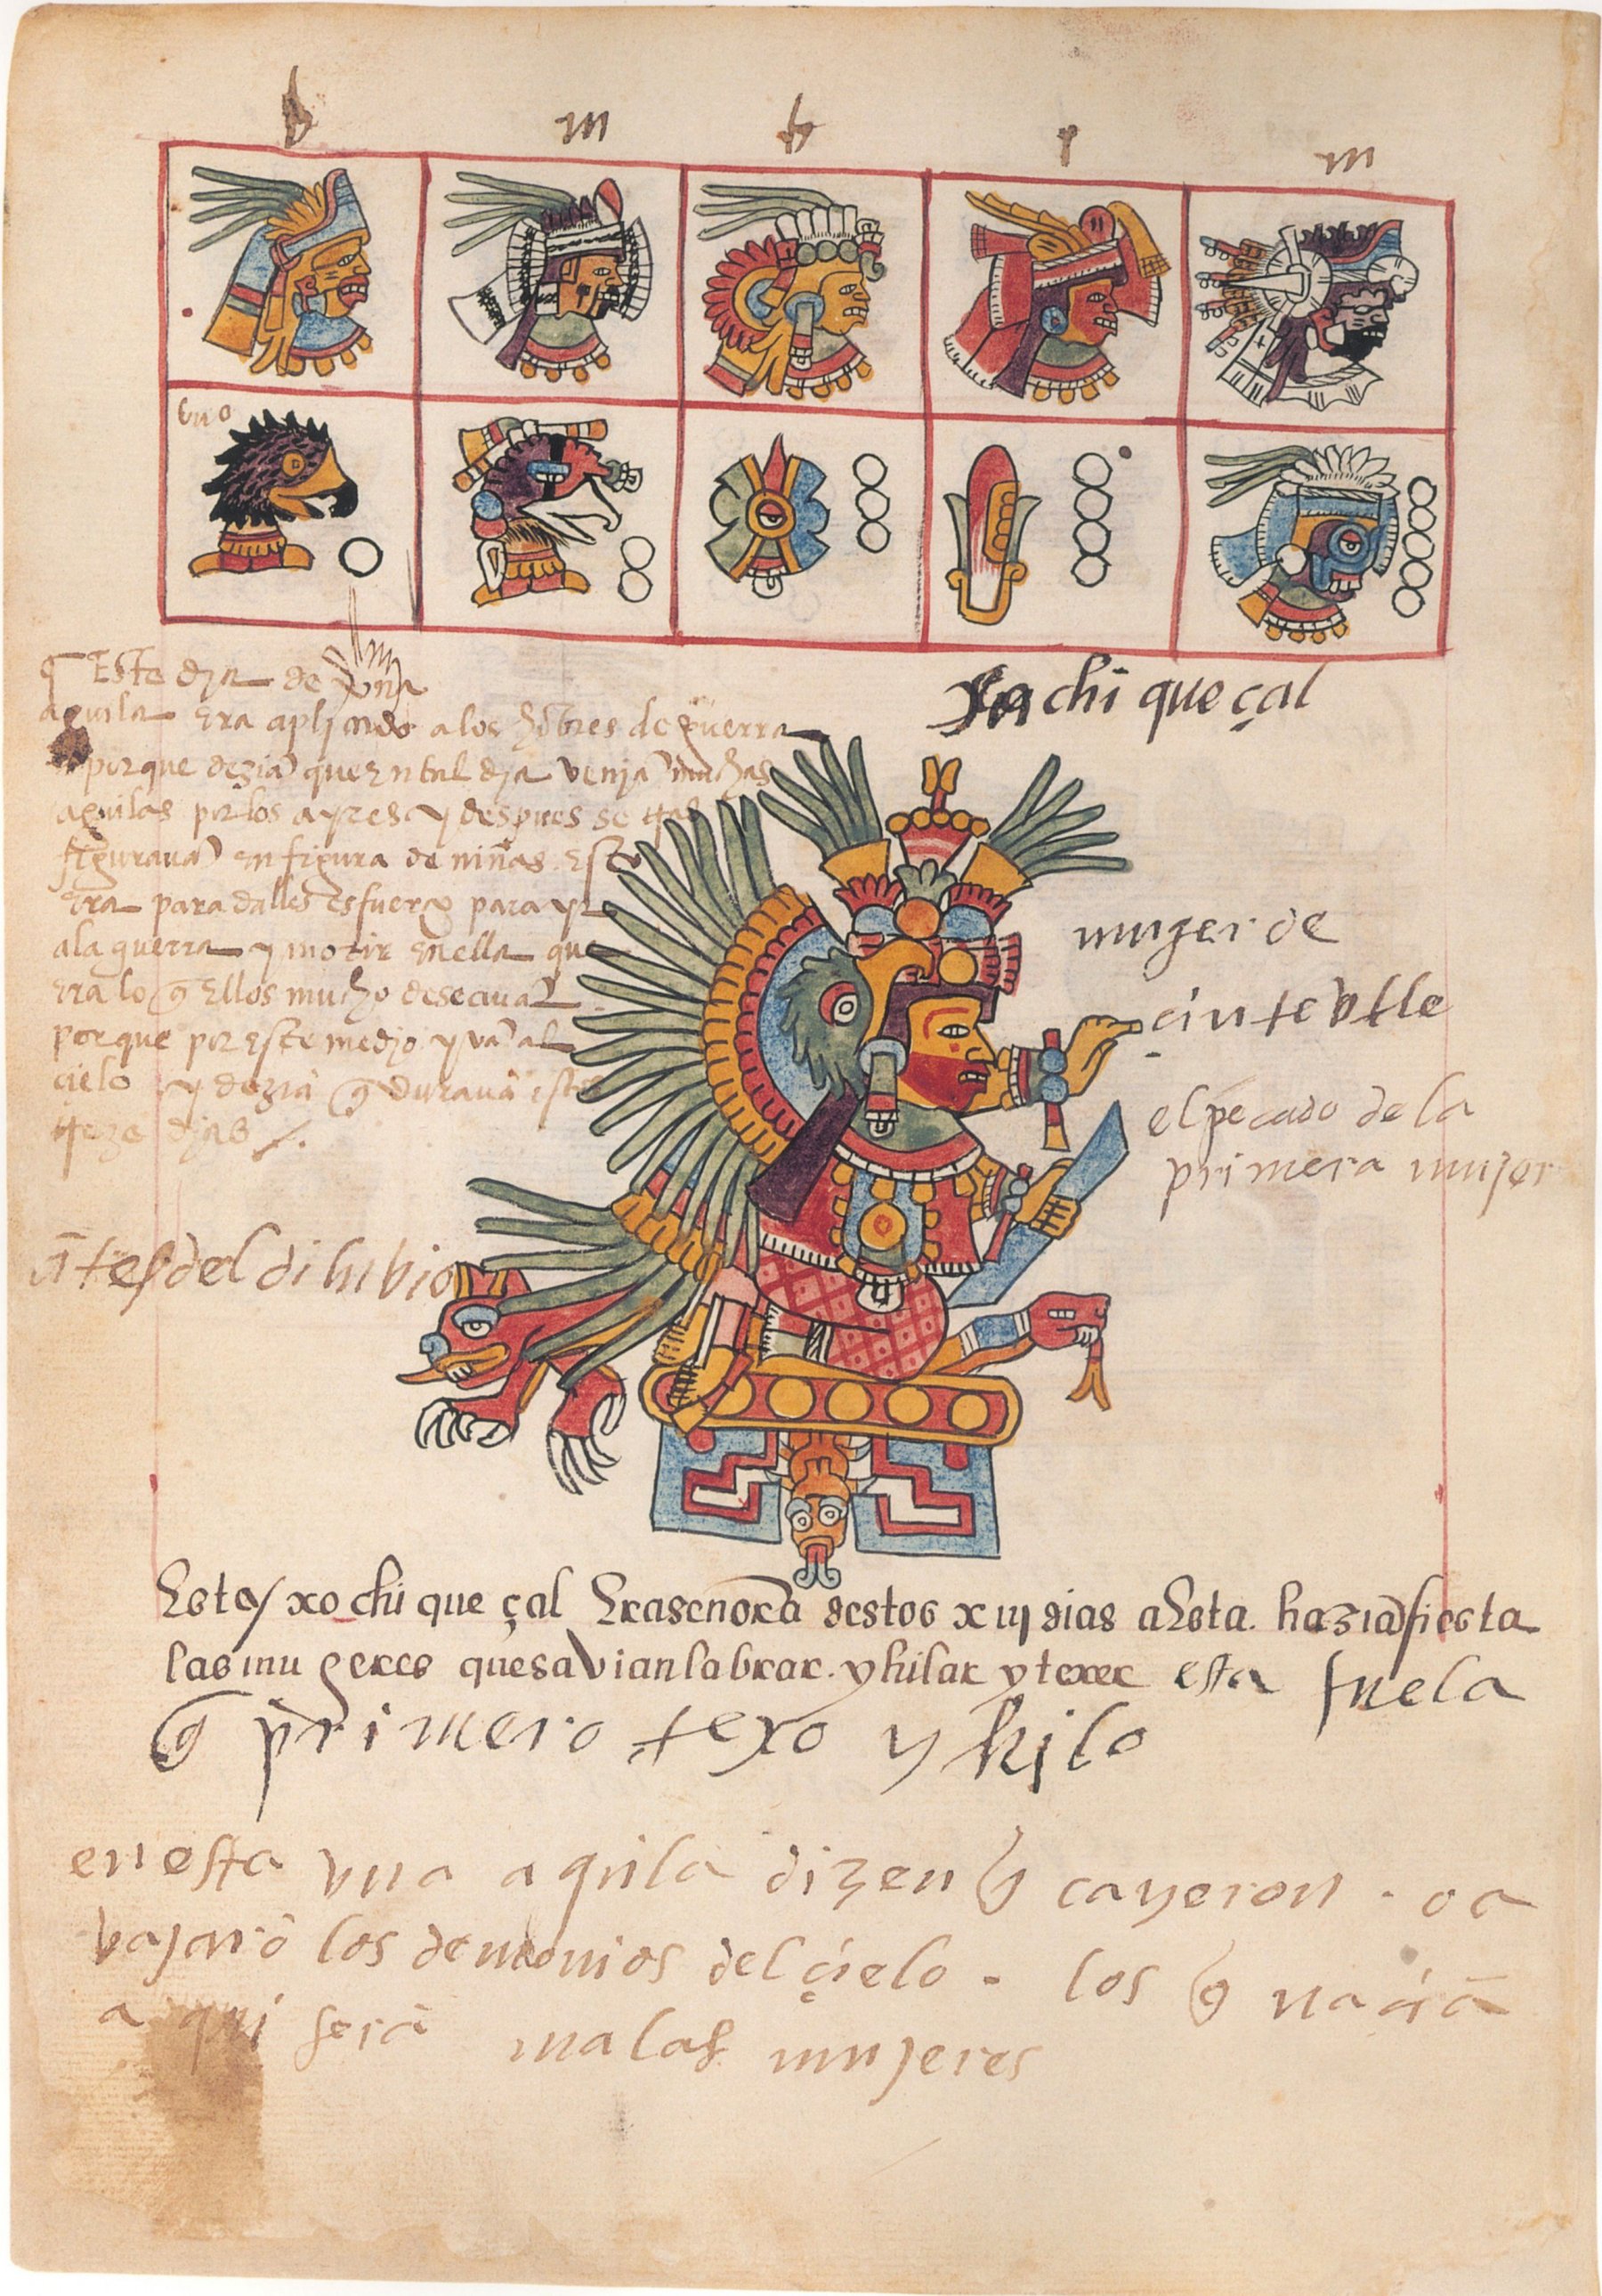 b m b y m
uno
¶ Este dia de una
aguila era aplicado a los hōbres de guerra
porque deziā que en tal dia veniā muchas
aguilas por los ayres y despues se
figuravā en figura de niñas Esto
era para dalles esfuerço para yr
a la guerra y morir en ella que
era lo q̄ Ellos mucho deseavā
porque por este medio yvā al
cielo y deziā q̄ duravā estos
treze dias
xochi queçal
muger de
cinteutle
el pecado de la
primera mujer
ātes del dilubio
Esta xochi que çal Era señora destos xiij dias a Esta haziā fiesta
las mugeres que savian labrar. y hilar y texer esta fue la
q̄ primero texo y hilo
en esta una aguila dizen q̄ cayeron . o a
bajarō los demonios del çielo . los q̄ naciā
a qui serā malas mujeres